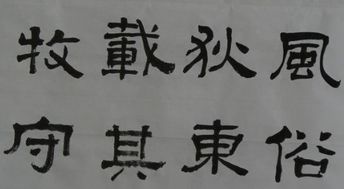 風俗
狄東
載其
牧守